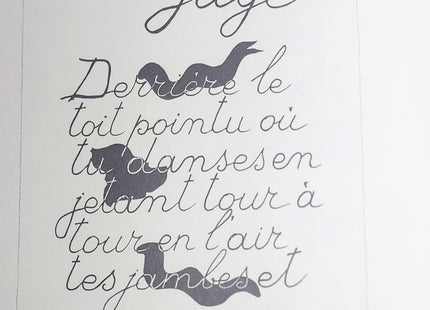 Derrière le
toit pointu où
tu danses en
jetant tour à
tour en l'air
tes jambes et